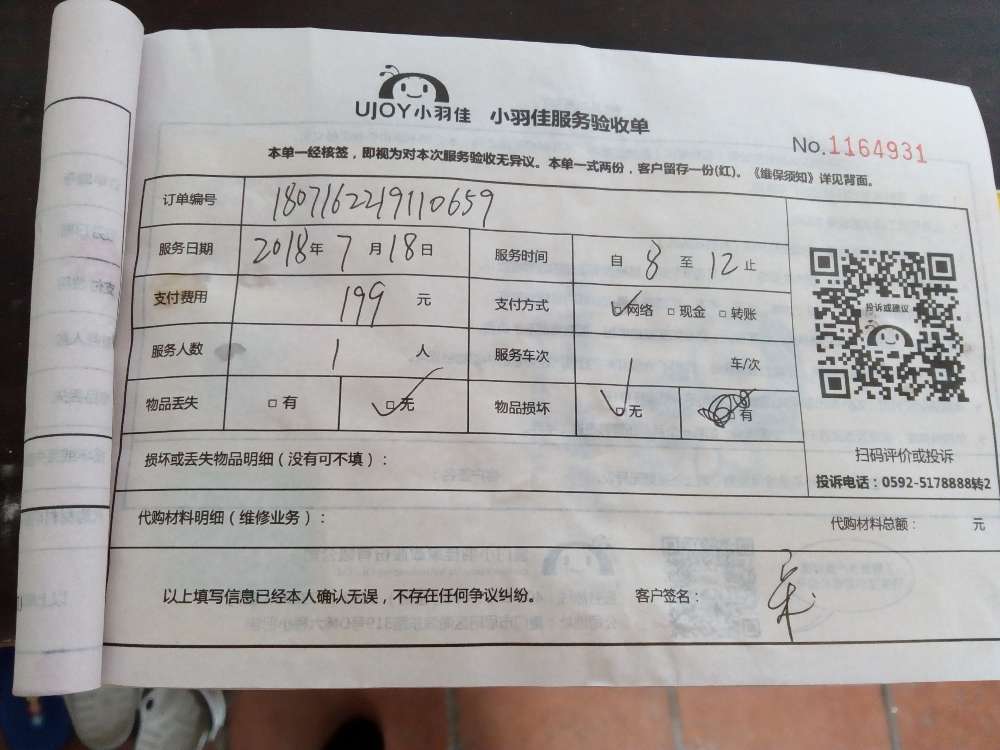 UJOY小羽佳 小羽佳服务验收单
No.1164931
本单一经核签，即视为对本次服务验收无异议。本单一式两份，客户留存一份(红)。《维保须知》详见背面。
订单编号 180716221910659
服务日期 2018年 7月18日 服务时间 自 8 至 12止
支付费用 199 元 支付方式 ☑网络 □现金 □转账
投诉或建议
服务人数 1 人 服务车次 车/次
物品丢失 □有 ☑无 物品损坏 ☑无 □有
损坏或丢失物品明细（没有可不填）：
扫码评价或投诉
投诉电话：0592-5178888转2
代购材料明细（维修业务）： 代购材料总额： 元
以上填写信息已经本人确认无误，不存在任何争议纠纷。 客户签名：